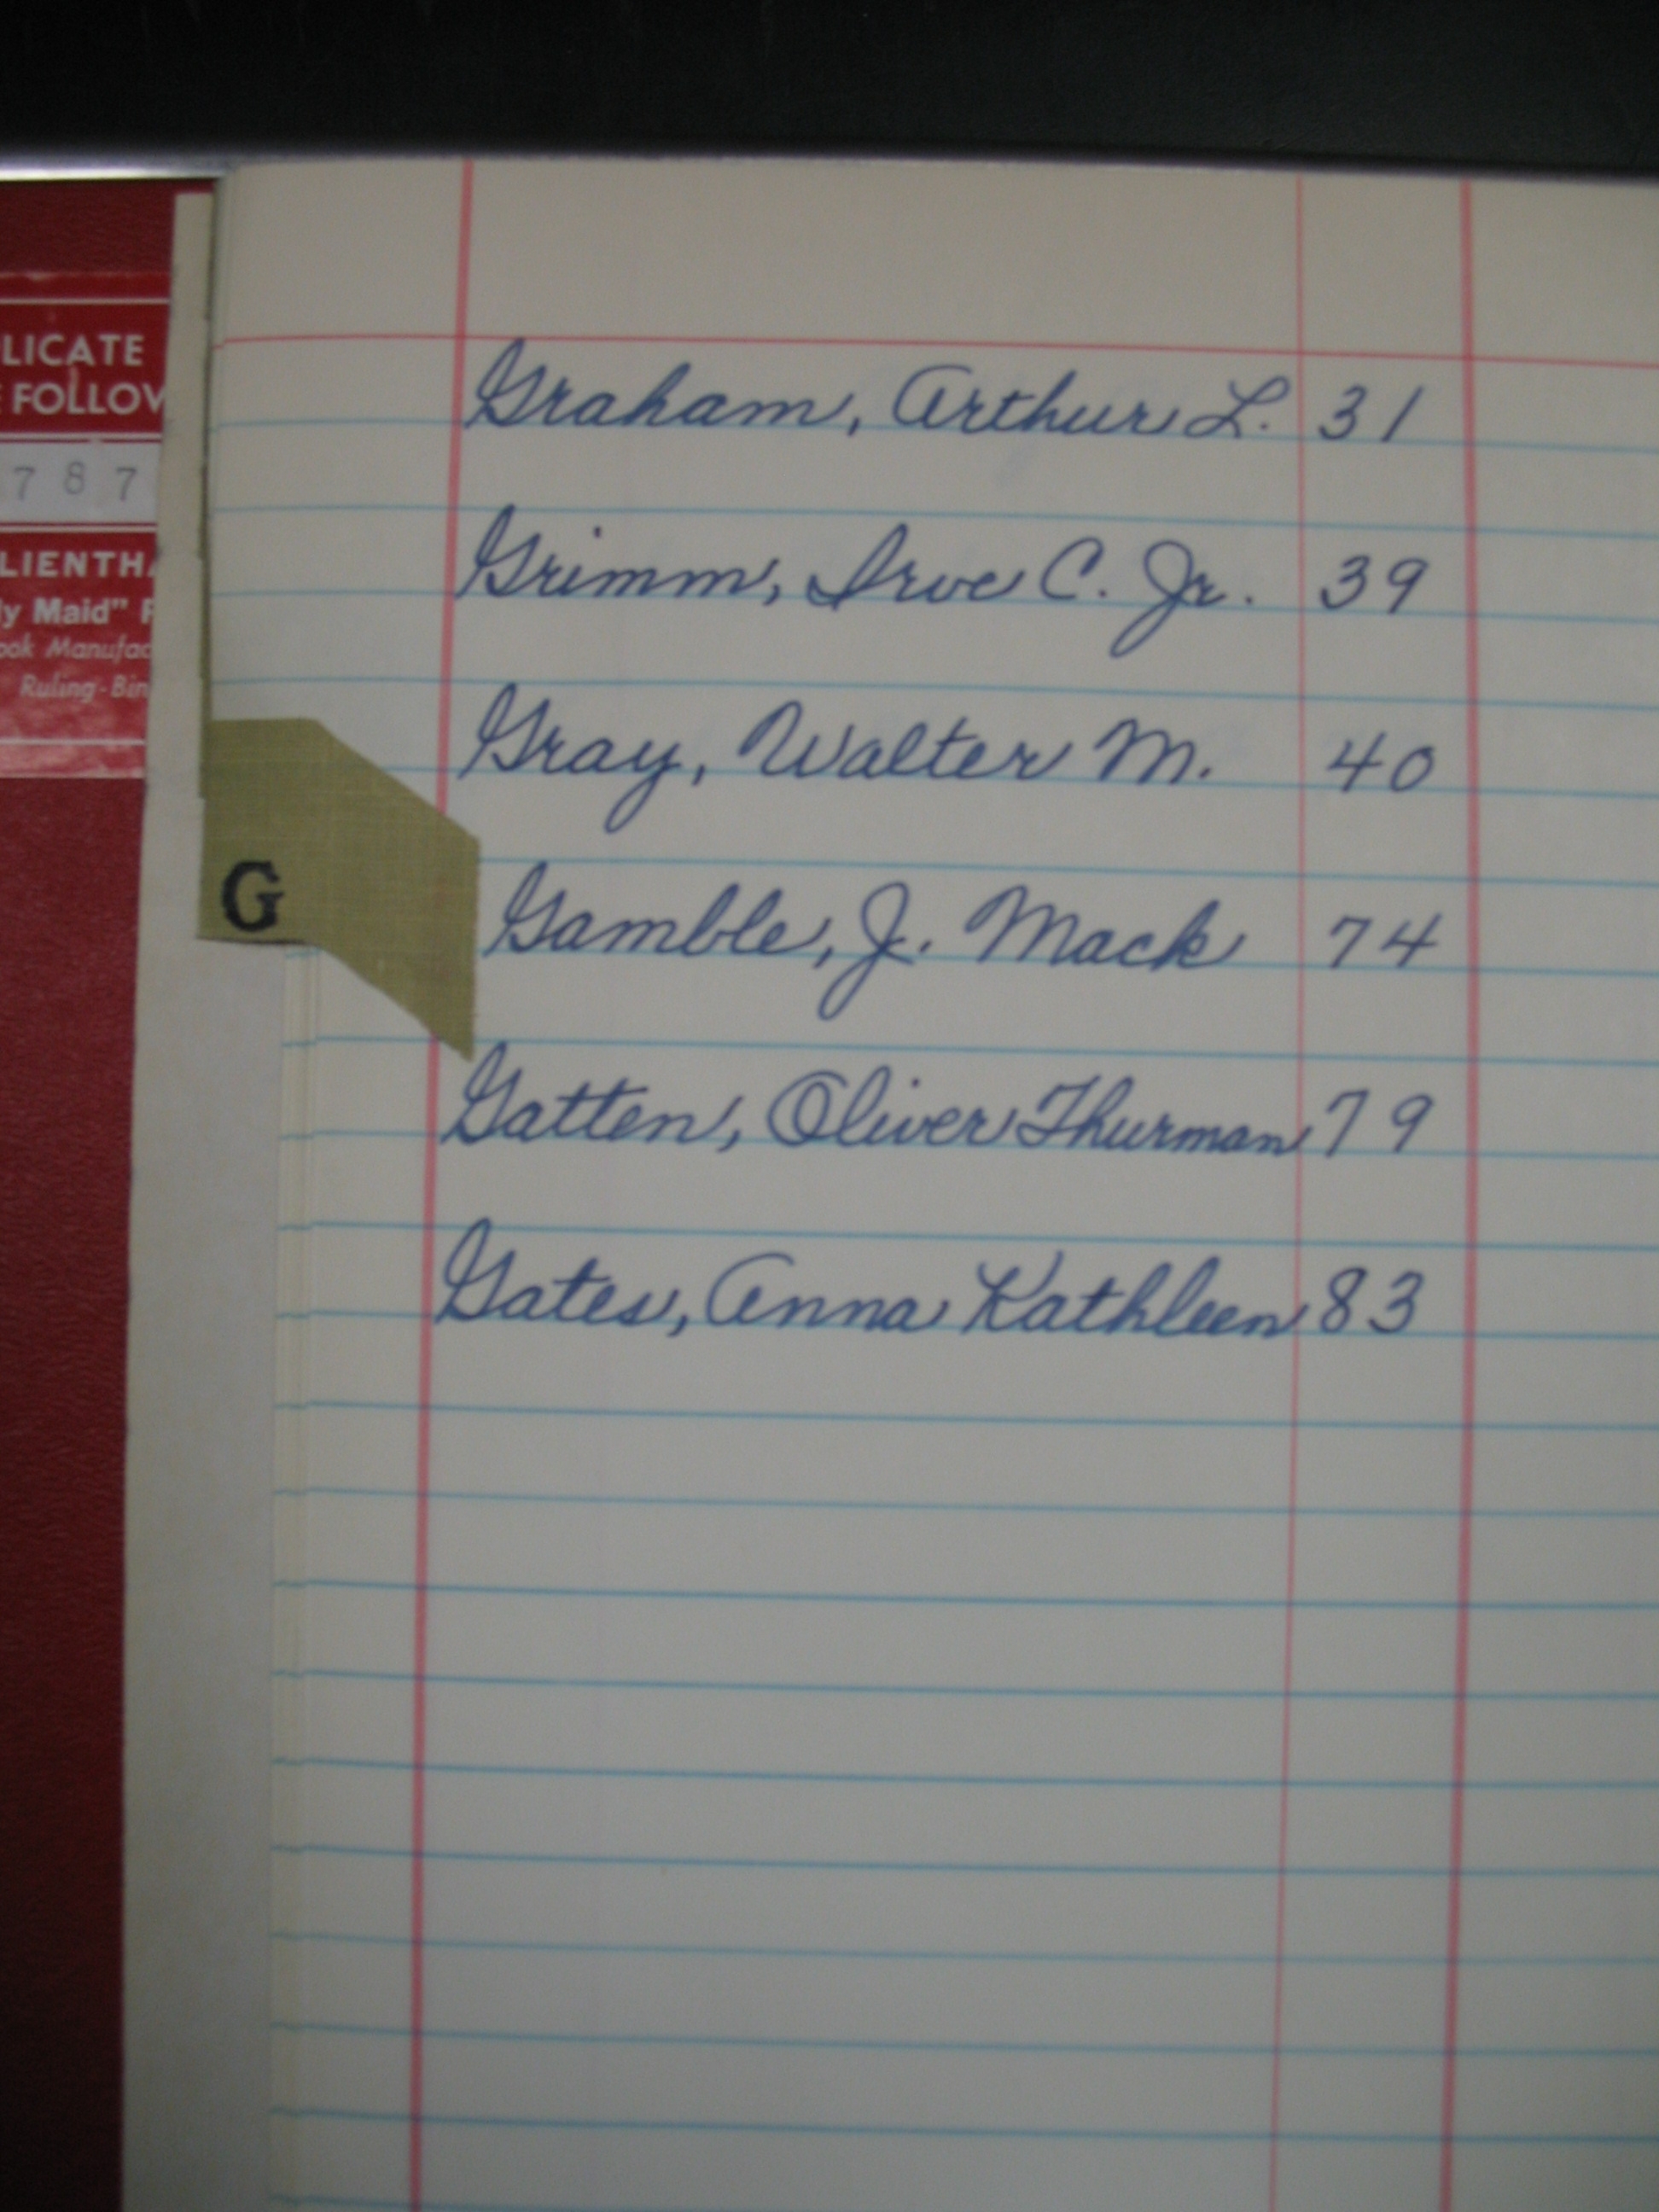 LICATE
FOLLOW
787
LIENTHA
ly Maid"
ook Manufac
Ruling-Bin
G
Graham, Arthur L. 31
Grimm, Irve C. Jr. 39
Gray, Walter M. 40
Gamble, J. Mack 74
Gatten, Oliver Thurman 79
Gates, Anna Kathleen 83